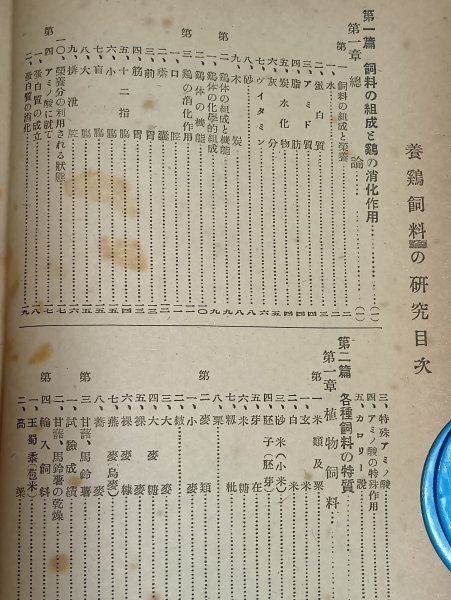 養鷄飼料の研究目次
第一篇 飼料の組成と鷄の消化作用…(一)
第一章 總論…(一)
第一 飼料の組成と榮養…二
一、水…二
二、蛋白質…二
三、アミド質…四
四、脂肪…四
五、炭水化物…四
六、灰分…五
七、ヴイタミン…六
八、砂…八
九、木炭…八
第二 鷄体の組成と機能…九
一、鷄体の化學的組成…九
二、鷄体の機能…一〇
第三 鷄の消化作用…
一、口腔…
二、嗉嚢…
三、前胃…三
四、筋胃…三
五、十二指腸…四
六、小腸…五
七、盲腸…五
八、大腸…五
九、排泄腔…六
一〇、榮養分の利用される狀態…七
第四 アミノ酸に就て…七
一、蛋白質の成立…八
二、蛋白質の消化…九
三、特殊アミノ酸
四、アミノ酸の特殊作用
五、カロリー說
第二篇 各種飼料の特質…
第一章 植物飼料…
第一 米類及粟
一、玄米
二、白米
三、砂米(小米)
四、胚子(胚芽)
五、芽在
六、米糖
七、糠粃
八、粟
第二 麥類
一、小麥
二、麩
三、大麥
四、大麥糖
五、裸麥
六、裸麥糠
七、燕麥(烏麥)
八、蕎麥
第三 甘藷、馬鈴薯
一、試驗成績
二、甘藷、馬鈴薯の乾燥
第四 輸入飼料
一、玉蜀黍(苞米)
二、高粱